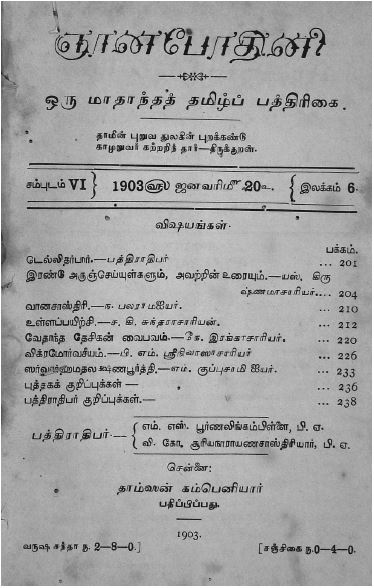 ஞானபோதினி
ஒரு மாதாந்தத் தமிழ்ப் பத்திரிகை.
தாமின் புறுவ துலகின் புறக்கண்டு
காமுறுவர் கற்றறிந் தார்—திருக்குறள்.
சம்புடம் VI } 1903௵ ஜனவரி௴ 20௳ { இலக்கம் 6.
விஷயங்கள்.
பக்கம்.
டெல்லிதர்பார்.—பத்திராதிபர் ... 201
இரண்டே அருஞ்செய்யுள்களும், அவற்றின் உரையும்.—யஸ். கிரு
ஷ்ணமாசாரியர்.... 204
வானசாஸ்திரி.—ந. பலராமஐயர். ... 210
உள்ளப்பயிற்சி.—ச. கி. சுந்தராசாரியன். ... 212
வேதாந்த தேசிகன் வைபவம்.—கே. இரங்காசாரியர். ... 220
விக்ரமோர்வசீயம்.—பி. எம். ஸ்ரீநிவாஸாசாரியர் ... 226
—எம். குப்புசாமி ஐயர். ... 233
புத்தகக் குறிப்புக்கள் — ... 236
பத்திராதிபர் குறிப்புக்கள்.— ... 238
எம். எஸ். பூர்ணலிங்கம்பிள்ளை, பி. ஏ.
பத்திராதிபர்.—
வி. கோ. சூரியநாராயணசாஸ்திரியார், பி. ஏ.
சென்னை:
தாம்ஸன் கம்பெனியார்
பதிப்பிப்பது.
1903.
வருஷ சந்தா ரூ. 2—8—0.] [சஞ்சிகை ரூ.0—4—0.